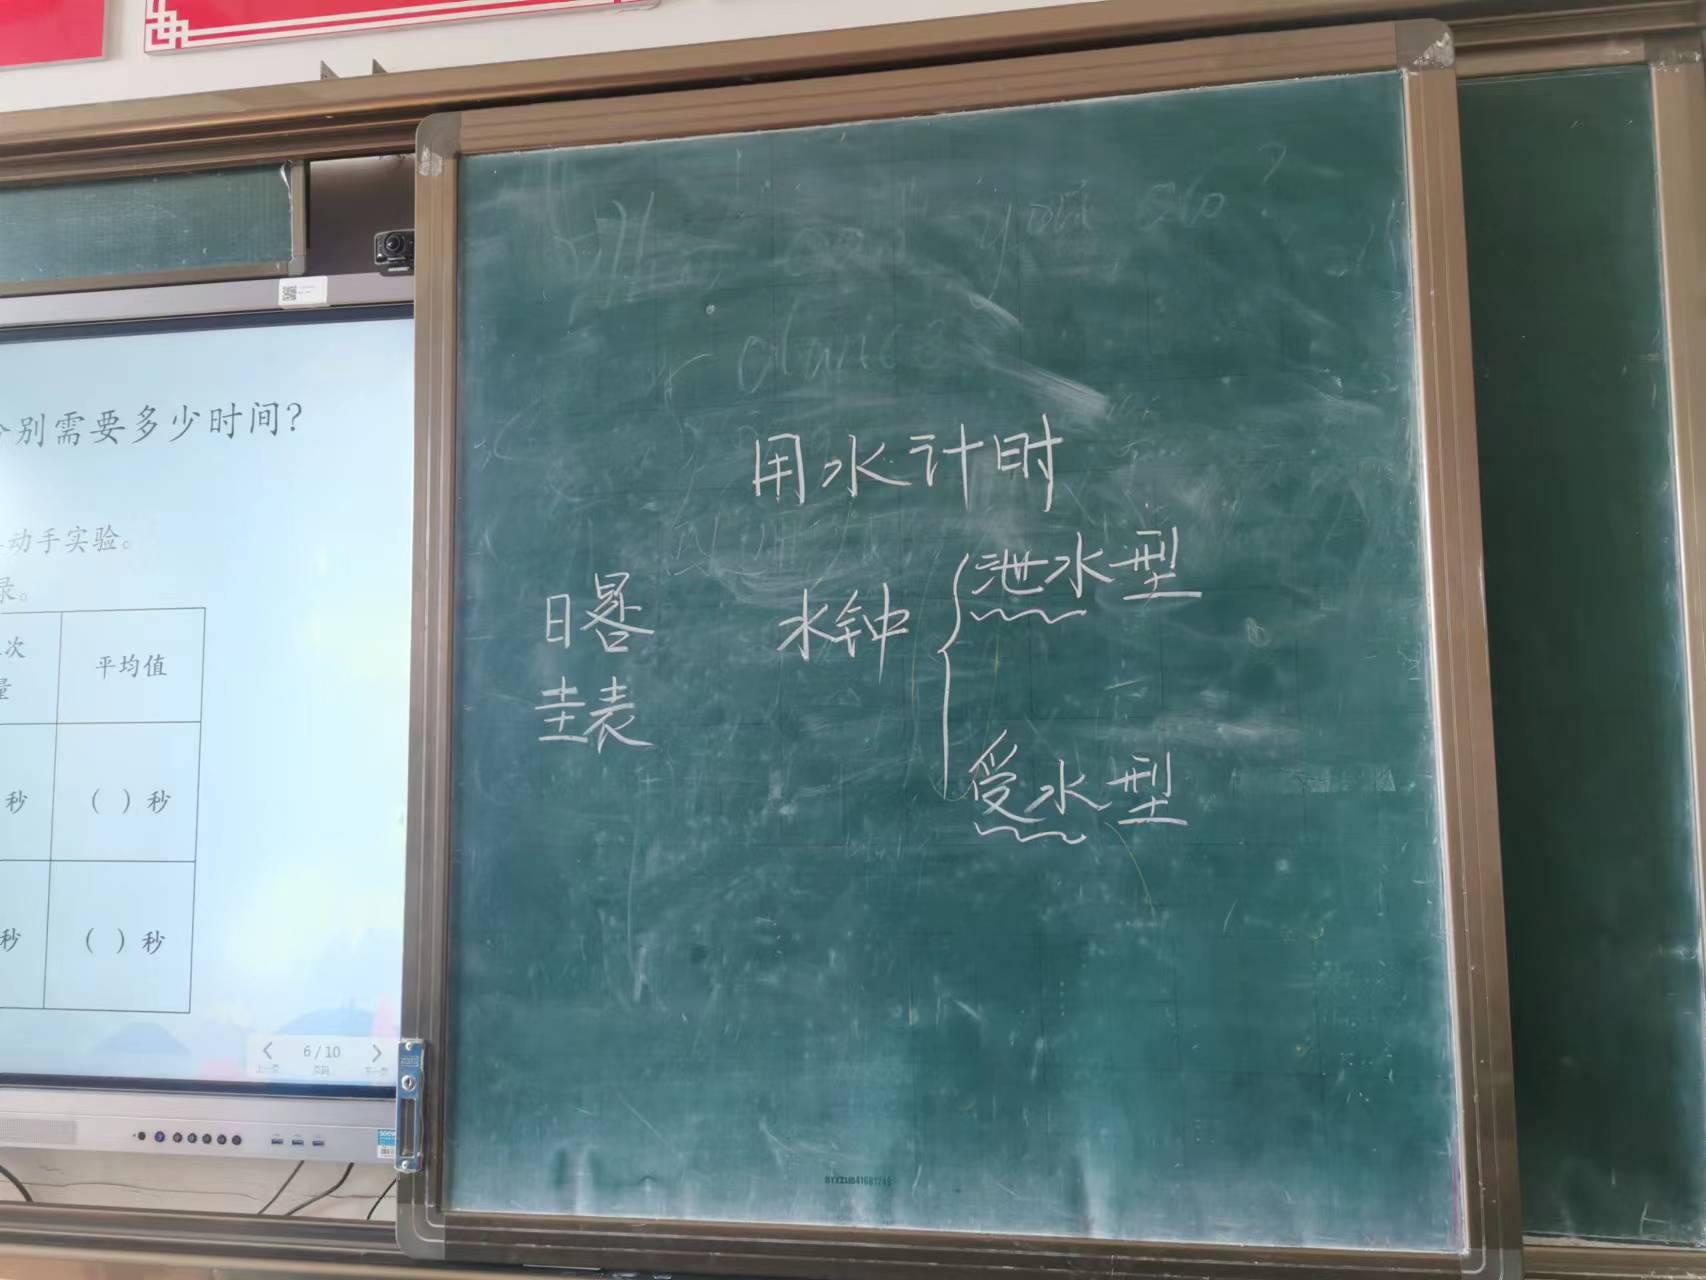 别需要多少时间?
动手实验。
录。
次
平均值
量
秒
( ) 秒
秒
( ) 秒
6 / 10
用水计时
日晷
水钟
泄水型
圭表
受水型